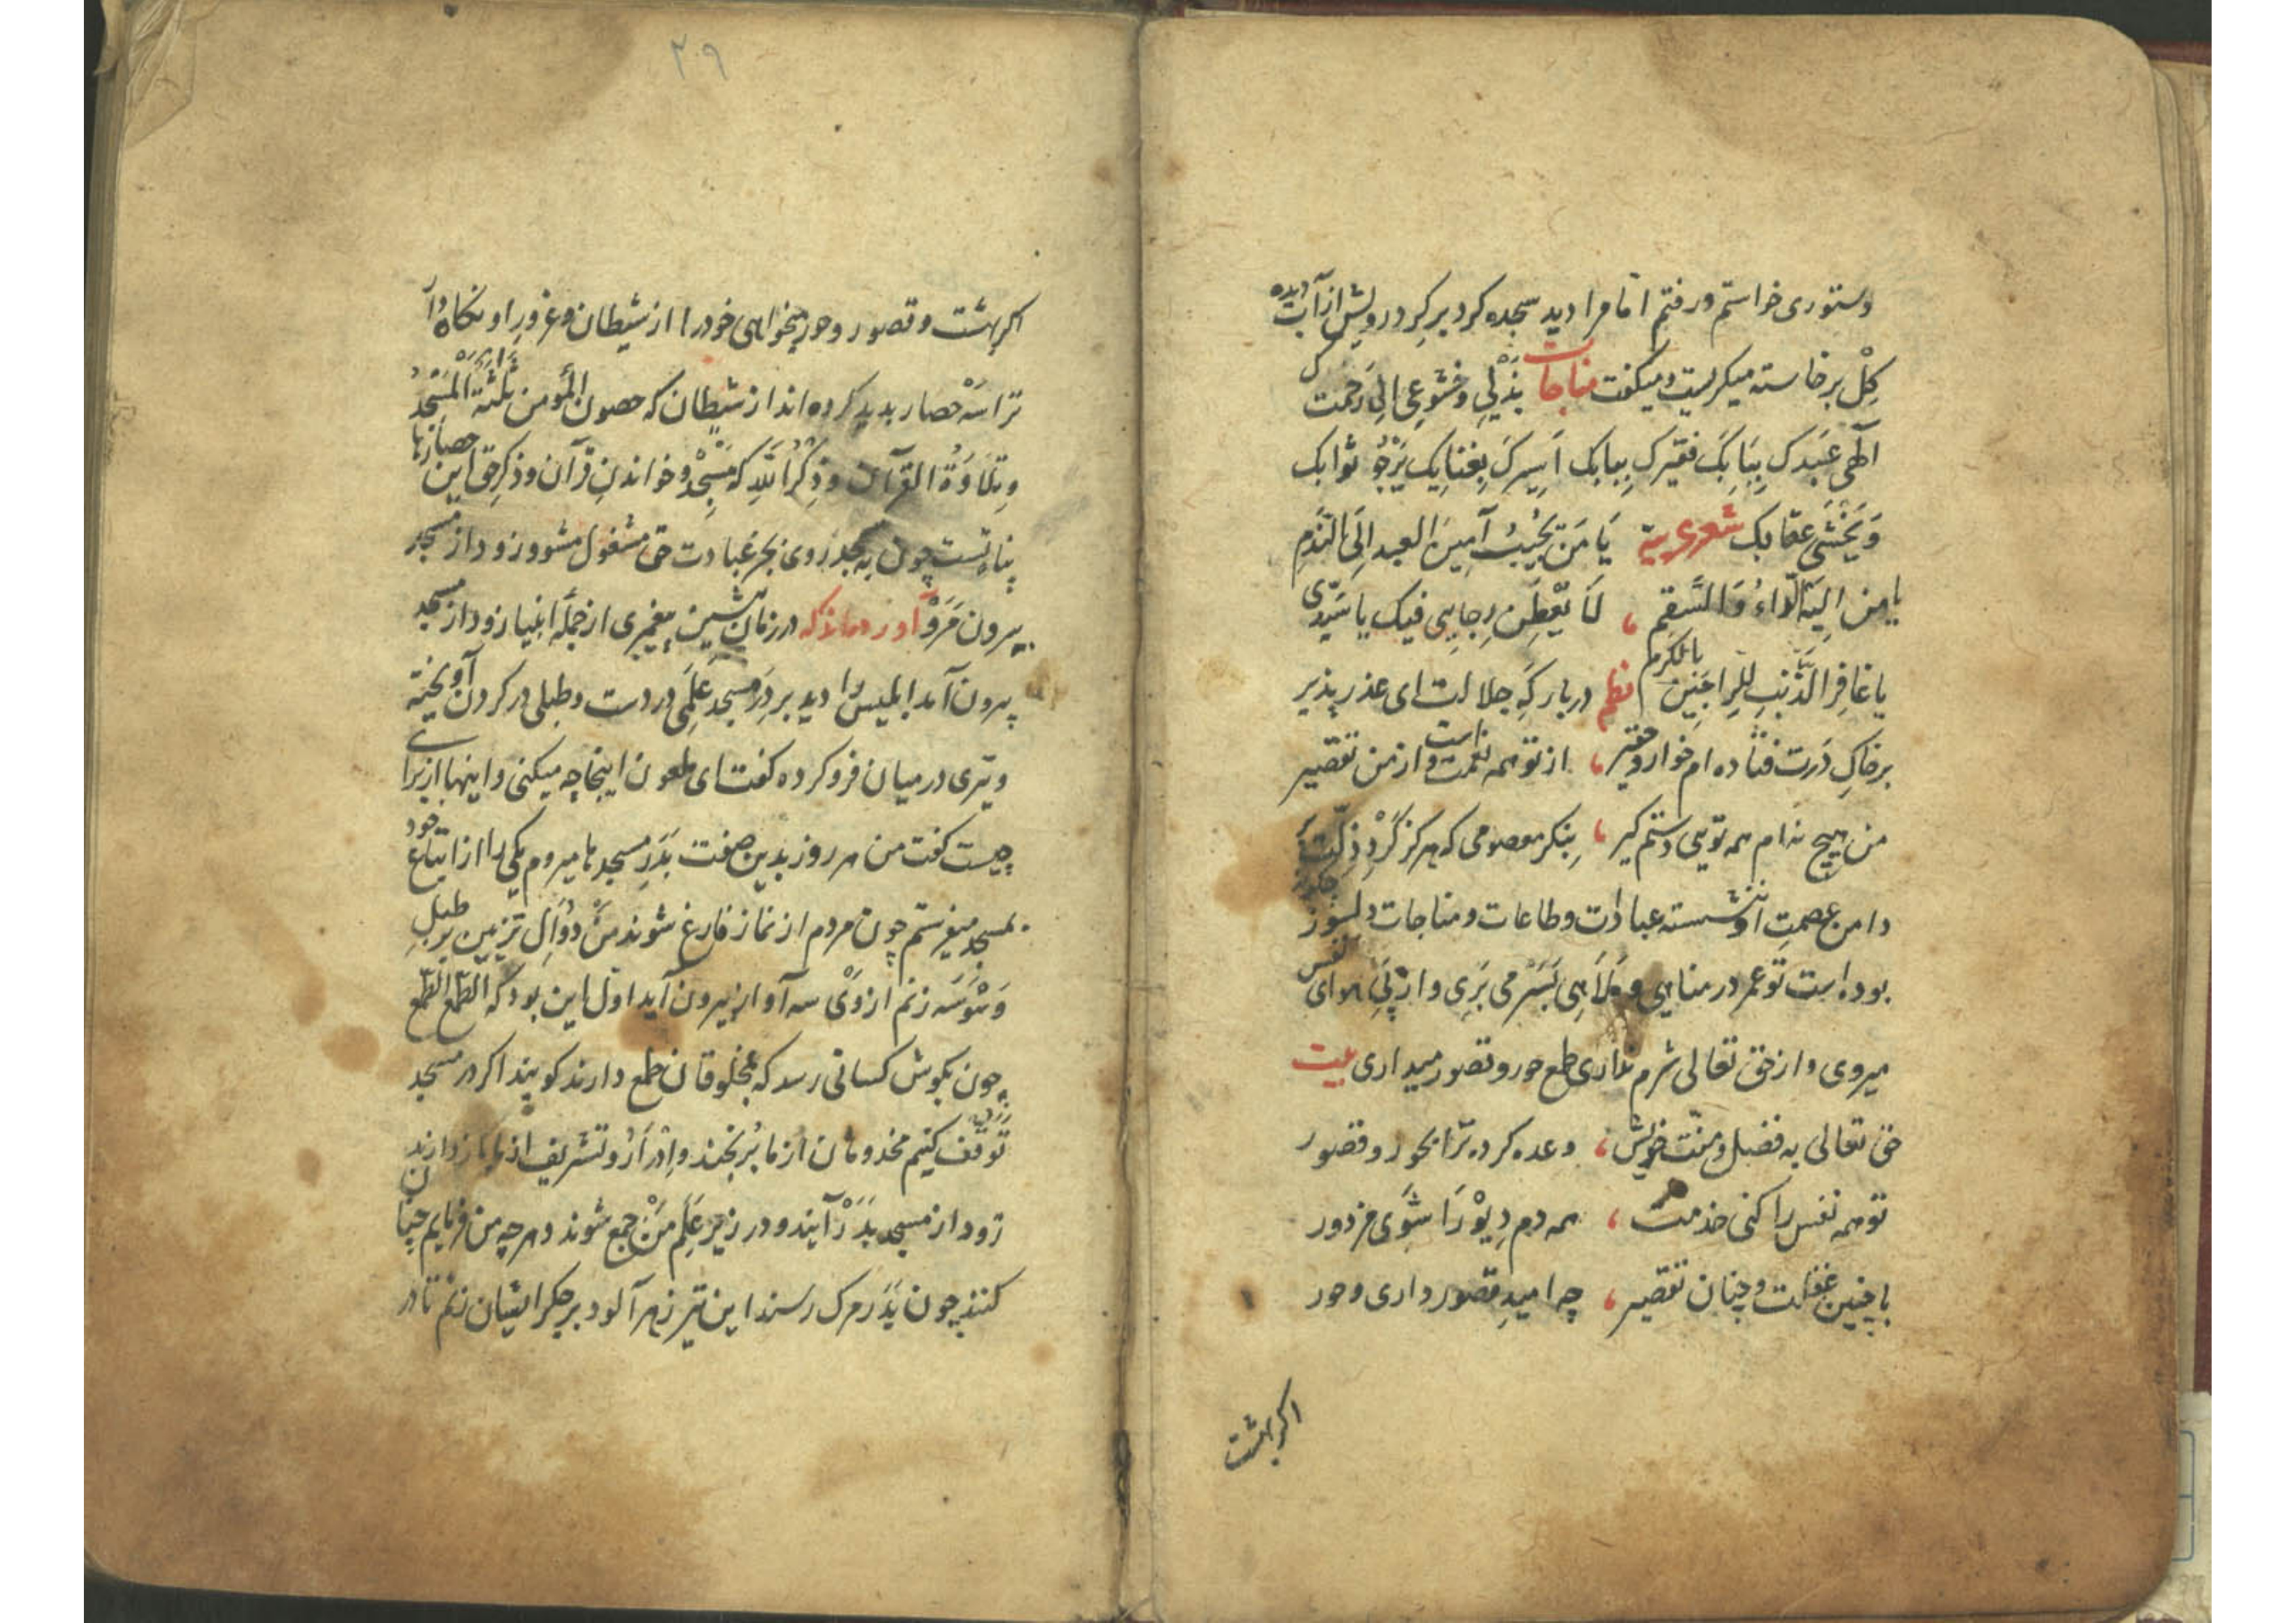 دستوری خواستم و رفتم اتا مرا دید سجده کرد بر کرد رویش از آب دیده
کِلْ برخاسته میکریست و میکفت مناجات بِذُلّیِ وخشوعی الی رَحمتک
آلهی عَبدک بِبَابِکَ فقیرک بِبابک اَسِیرکَ بِفنایِک یَرْجُو ثوابک
وَیَخْشَی عقابک شعر عربیة یَا مَن یُجِیْبُ العبد اِلَی النَّدَمِ
یا من اِلَیه الدّاءُ وَالسَّقمِ ، لَا تَقْطَعن رِجایی فیک یا سَیّدی
یا غافِرَ الذَّنبِ لِلراجِین بالکَرَم نظم در بارکَهِ جلالت ای عذر پذیر
بر خاکِ دَرت فتاده ام خوار و حقیر ، از تو همه نعمت است و از من تقصیر
من هیچ ندام همه تویی دستم کیر ، بِنکر معصومی که هرکز کَرْدِ ذِلّت بر
دامن عصمتِ او ننشسته عبادات و طاعات و مناجات دلسوز چکونه
بوده است تو عمر در مناهی و مَلَاهِی بَسَرْ می بَرِی و از پَیِ هوای نفس
میروی و از حق تعالی شرم نداری طمع حور و قصور میداری بیت
حق تعالی به فضل و منّت خویش ، وعده کرده ترّا بحور و قصور
تو همه نفس را کنی خدمت ، همه دم دِیوْ رَا شَوی مزدور
با چنین غفلت و چنان تقصیر ، چه امیدِ قصور داری و حور
اکر بهشت
۲۰۹
اکر بهشت و قصور و حور میخواهی خود را از شیطان و غرورِ او نکاه دار
ترا سَه حصار بدید کرده اند از شیطان که حصون المؤمن ثلٰثة المَسْجِدُ
وتِلَاوَةُ القرآن وذِکْرُ اللّهِ که مَسْجِدْ و خواندنِ قرآن و ذکرِ حق این حصارها
پناه تست چون به مسجد روی بجز عبادت حق مشغول مشو و زود از مسجد
بیرون مَرَوْ آورده اند که در زمان پیشین پیغمبری از جملَهٔ انبیا زود از مسجد
بیرون آمد ابلیس را دید بر دَرِ مسجد عَلَمی در دست و طبلی در کردن آویخته
و تیری در میان فرو کرده کفت ای ملعون اینجا چه میکنی و اینها از برای
چیست کفت من هر روز بدین صفت بَدَرِ مسجدها میروم یکی را از اتباع خود
بمسجد میفرستم چون مردم از نماز فارغ شوند مَنْ دُوَالِ تزیین بر طبلِ
وَسْوَسَه زنم از وَیْ سه آواز بیرون آید اوّل این بود که الطّمع الطّمع
چون بکوش کسانی رسد که بمخلوقان طمع دارند کویند اکر در مسجد
تَوَقّف کنیم مخدومان از ما بُرنجند و اِدْرَارْ و تشریف از ما باز دارند
زود از مسجد بَدَرْ آیند و در زیرِ عَلَمِ مَنْ جمع شوند و هر چه من فرمایم چنان
کنند چون بَدَرِ مرک رسند این تیر زهر آلود بر جکر ایشان زنم تا در